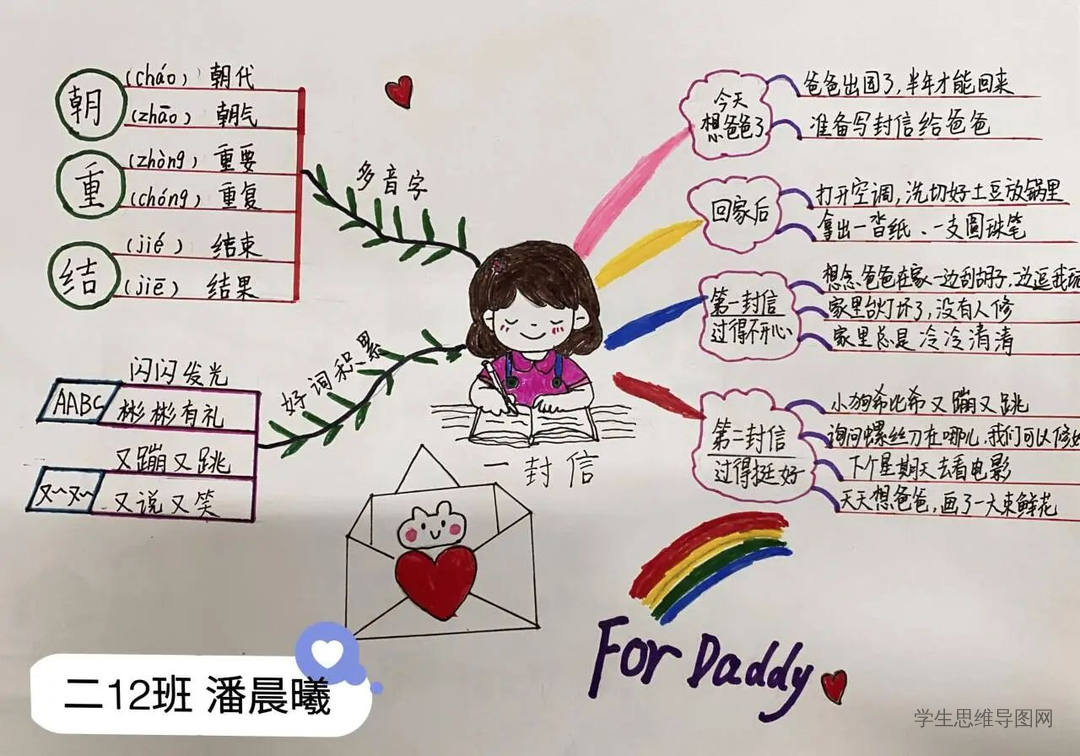 朝
(cháo) 朝代
(zhāo) 朝气
重
(zhòng) 重要
(chóng) 重复
结
(jié) 结束
(jiē) 结果
多音字
好词积累
AABC
闪闪发光
彬彬有礼
又~又~
又蹦又跳
又说又笑
一封信
今天
想爸爸了
爸爸出国了,半年才能回来
准备写封信给爸爸
回家后
打开空调,洗切好土豆放锅里
拿出一沓纸、一支圆珠笔
第一封信
过得不开心
想念爸爸在家一边刮胡子,边逗我玩
家里台灯坏了,没有人修
家里总是冷冷清清
第二封信
过得挺好
小狗希比希又蹦又跳
询问螺丝刀在哪儿,我们可以修好
下个星期天去看电影
天天想爸爸,画了一大束鲜花
For Daddy
二12班 潘晨曦
学生思维导图网